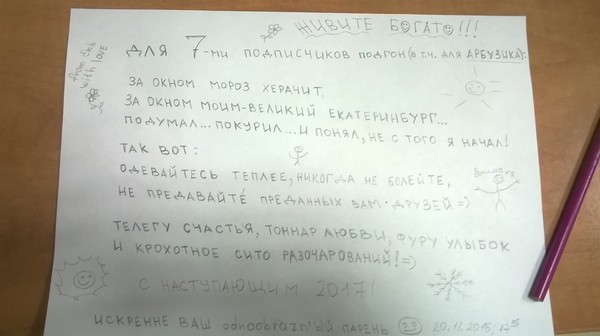 ЖИВИТЕ БОГАТО!!!
from Ekb
with LOVE
ДЛЯ 7-МИ ПОДПИСЧИКОВ ПОДГОН (В Т.Ч. ДЛЯ АРБУЗИКА):
ЗА ОКНОМ МОРОЗ ХЕРАЧИТ,
ЗА ОКНОМ МОИМ-ВЕЛИКИЙ ЕКАТЕРИНБУРГ...
ПОДУМАЛ...ПОКУРИЛ...И ПОНЯЛ, НЕ С ТОГО Я НАЧАЛ!
ТАК ВОТ:
ОДЕВАЙТЕСЬ ТЕПЛЕЕ, НИКОГДА НЕ БОЛЕЙТЕ,
НЕ ПРЕДАВАЙТЕ ПРЕДАННЫХ ВАМ ДРУЗЕЙ =)
ТЕЛЕГУ СЧАСТЬЯ, ТОННАР ЛЮБВИ, ФУРУ УЛЫБОК
И КРОХОТНОЕ СИТО РАЗОЧАРОВАНИЙ! =)
С НАСТУПАЮЩИМ 2017!
ИСКРЕННЕ ВАШ odnoobraznый ПАРЕНЬ